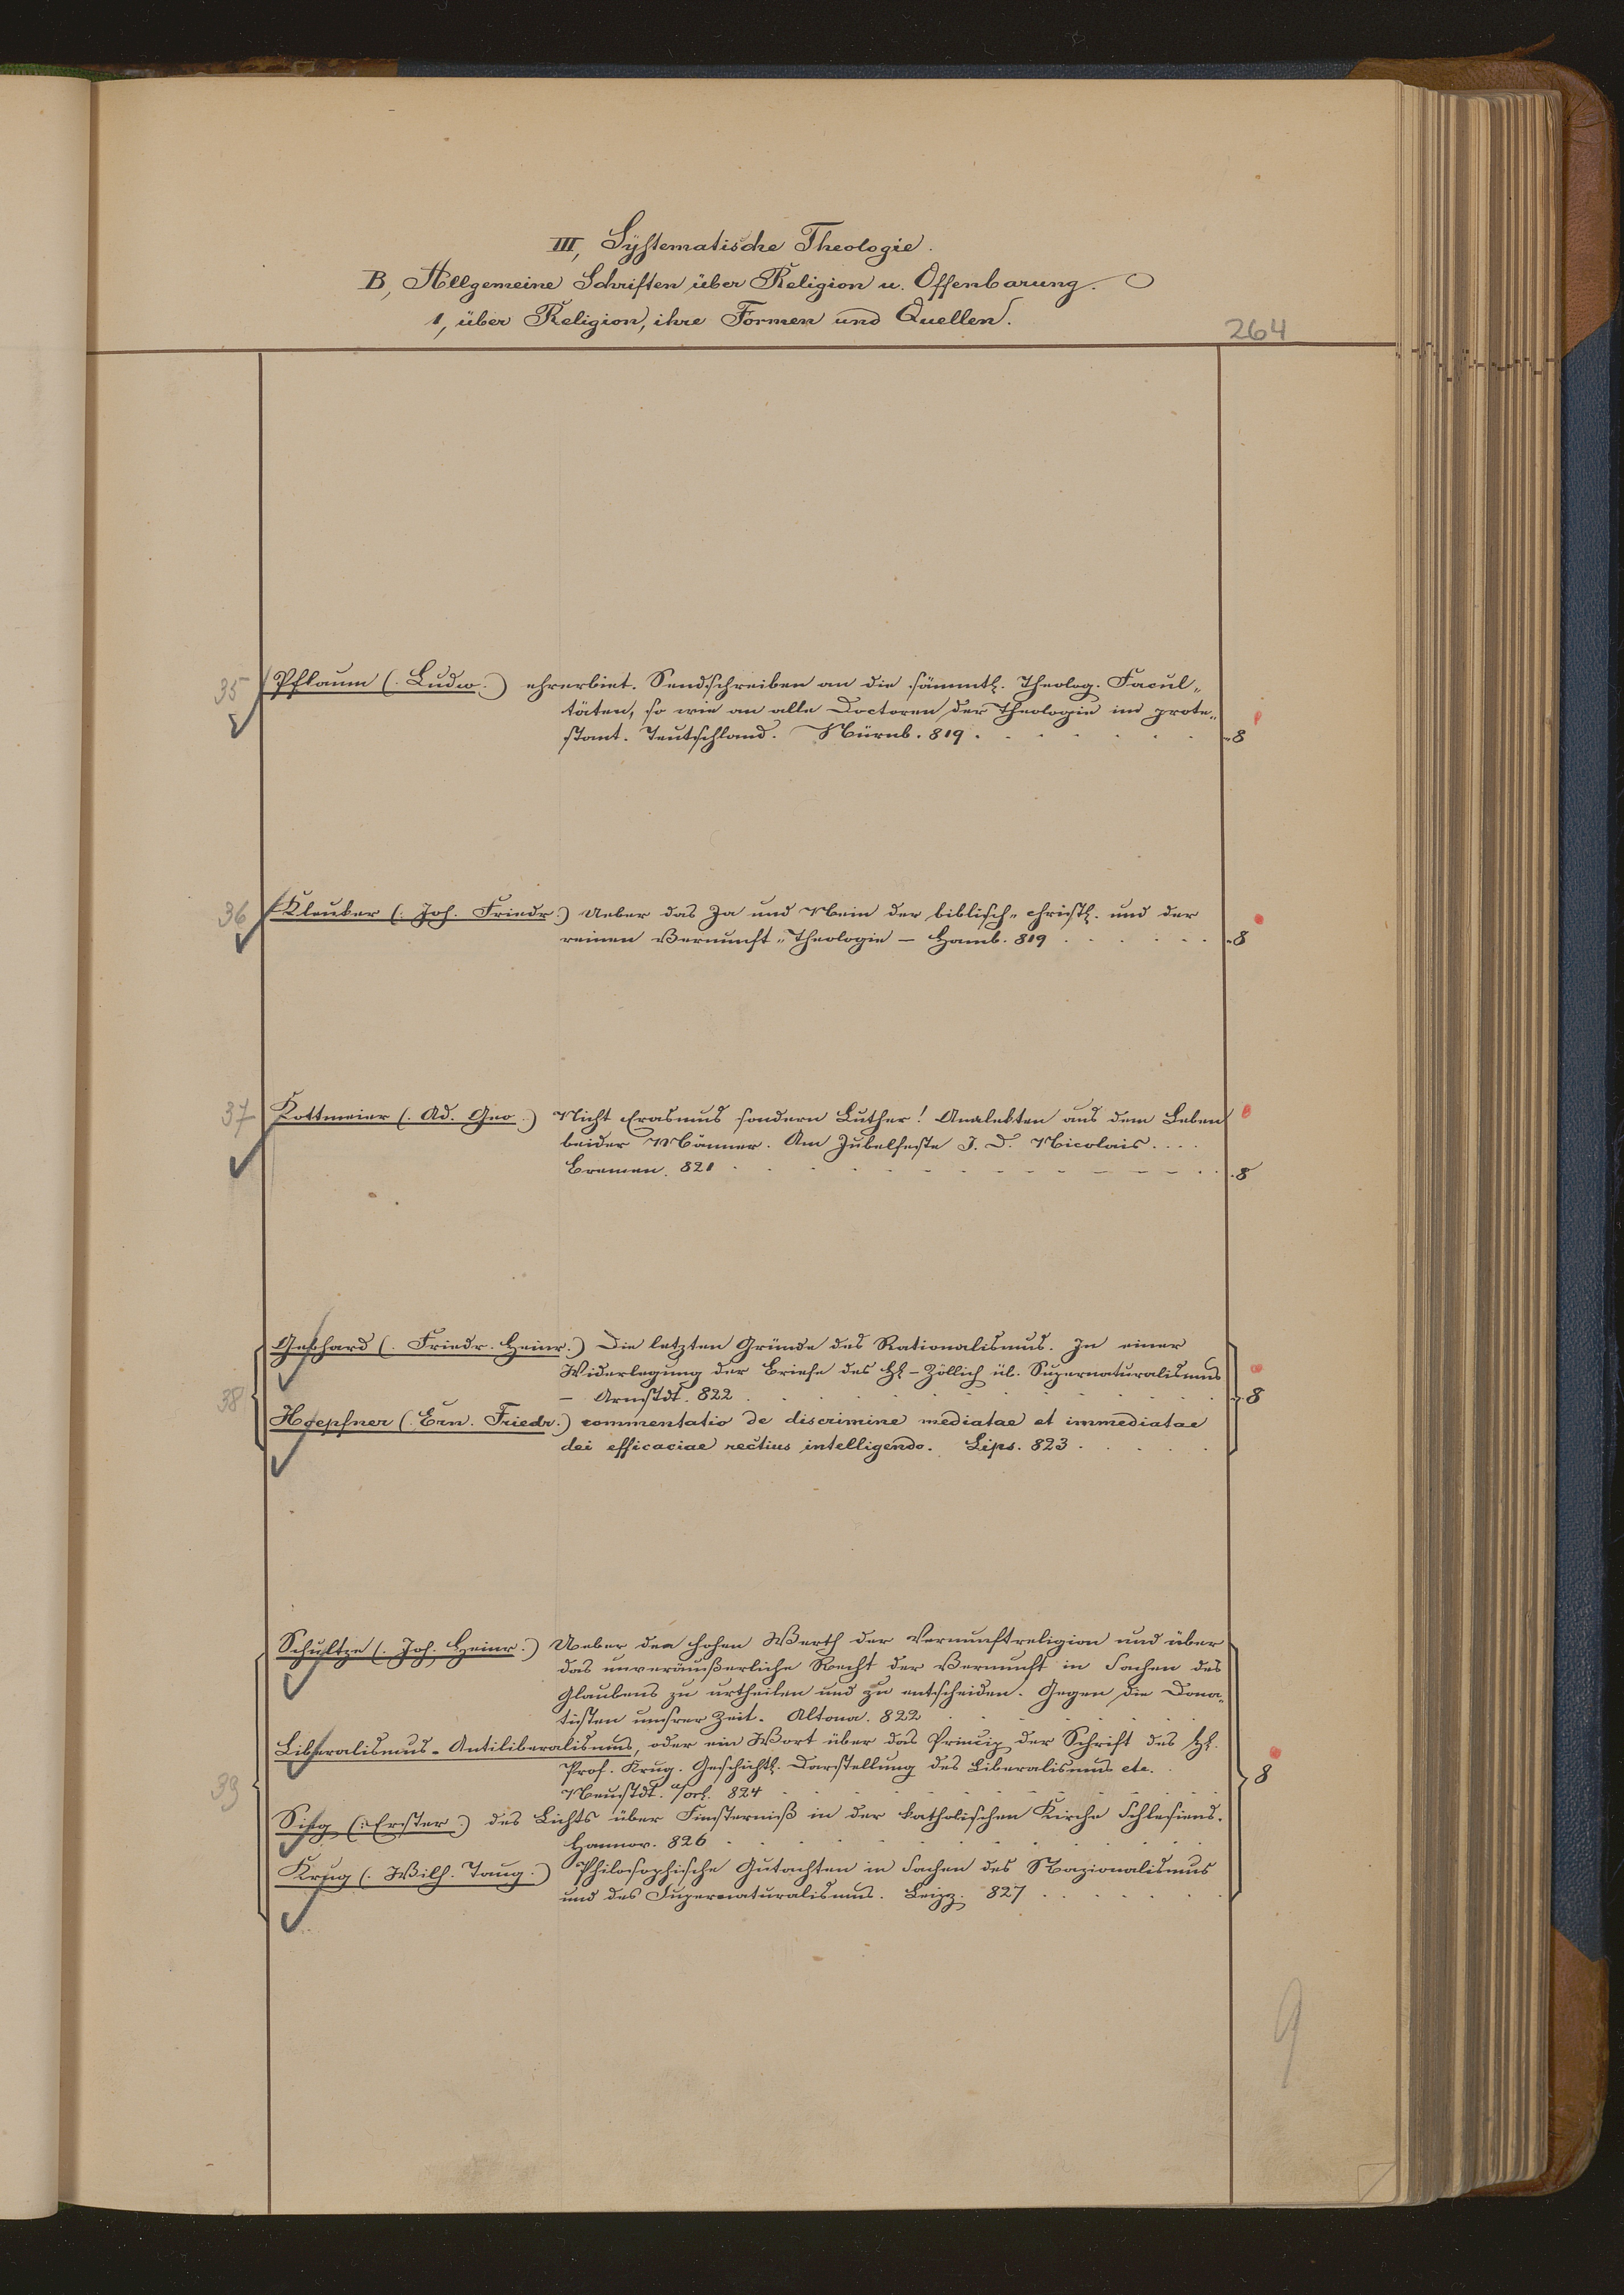 III, Systematische Theologie.
B, Allgemeine Schriften über Religion u. Offenbarung.
1, über Religion, ihre Formen und Quellen.
264
35 Pflaum (. Ludw.) ehrerbiet. Sendschreiben an die sämmtl. theolog. Facul-
täten, so wie an alle Doctoren der Theologie im prote-
stant. Teutschland. Nürnb. 819 . 8
36 Kleuker (. Joh. Friedr.) Ueber das Ja und Nein der biblisch-christl. und der
reinen Vernunft-Theologie — Hamb. 819 . 8
37 Kottmeier (. Ad. Geo.) Nicht Erasmus sondern Luther! Analekten aus dem Leben
beider Männer. Am Jubelfeste J. D. Nicolais . . . .
Bremen. 821 . 8
Gebhard (. Friedr. Heinr.) Die letzten Gründe des Rationalismus. In einer
Widerlegung der Briefe des H. Zöllich üb. Supernaturalismus
38 — Arnstdt. 822 . 8
Hoepfner (. Ern. Friedr.) commentatio de discrimine mediatae et immediatae
dei efficaciae rectius intelligendo. Lips. 823 .
Schultze (. Joh. Heinr.) Ueber den hohen Werth der Vernunftreligion und über
das unveräußerliche Recht der Vernunft in Sachen des
Glaubens zu urtheilen und zu entscheiden. Gegen die Dona-
tisten unsrer Zeit. Altona. 822
Liberalismus-Antiliberalismus, oder ein Wort über das Princip der Schrift des H.
Prof. Krug. Geschichtl. Darstellung des Liberalismus etc.
39 Neustdt. a/Orl. 824 8
Sieg (: Erster.) des Lichts über Finsterniß in der katholischen Kirche Schlesiens.
Hannov. 826
Krug (. Wilh. Traug.) Philosophische Gutachten in Sachen des Razionalismus
und des Supernaturalismus. Leipz. 827 .
9